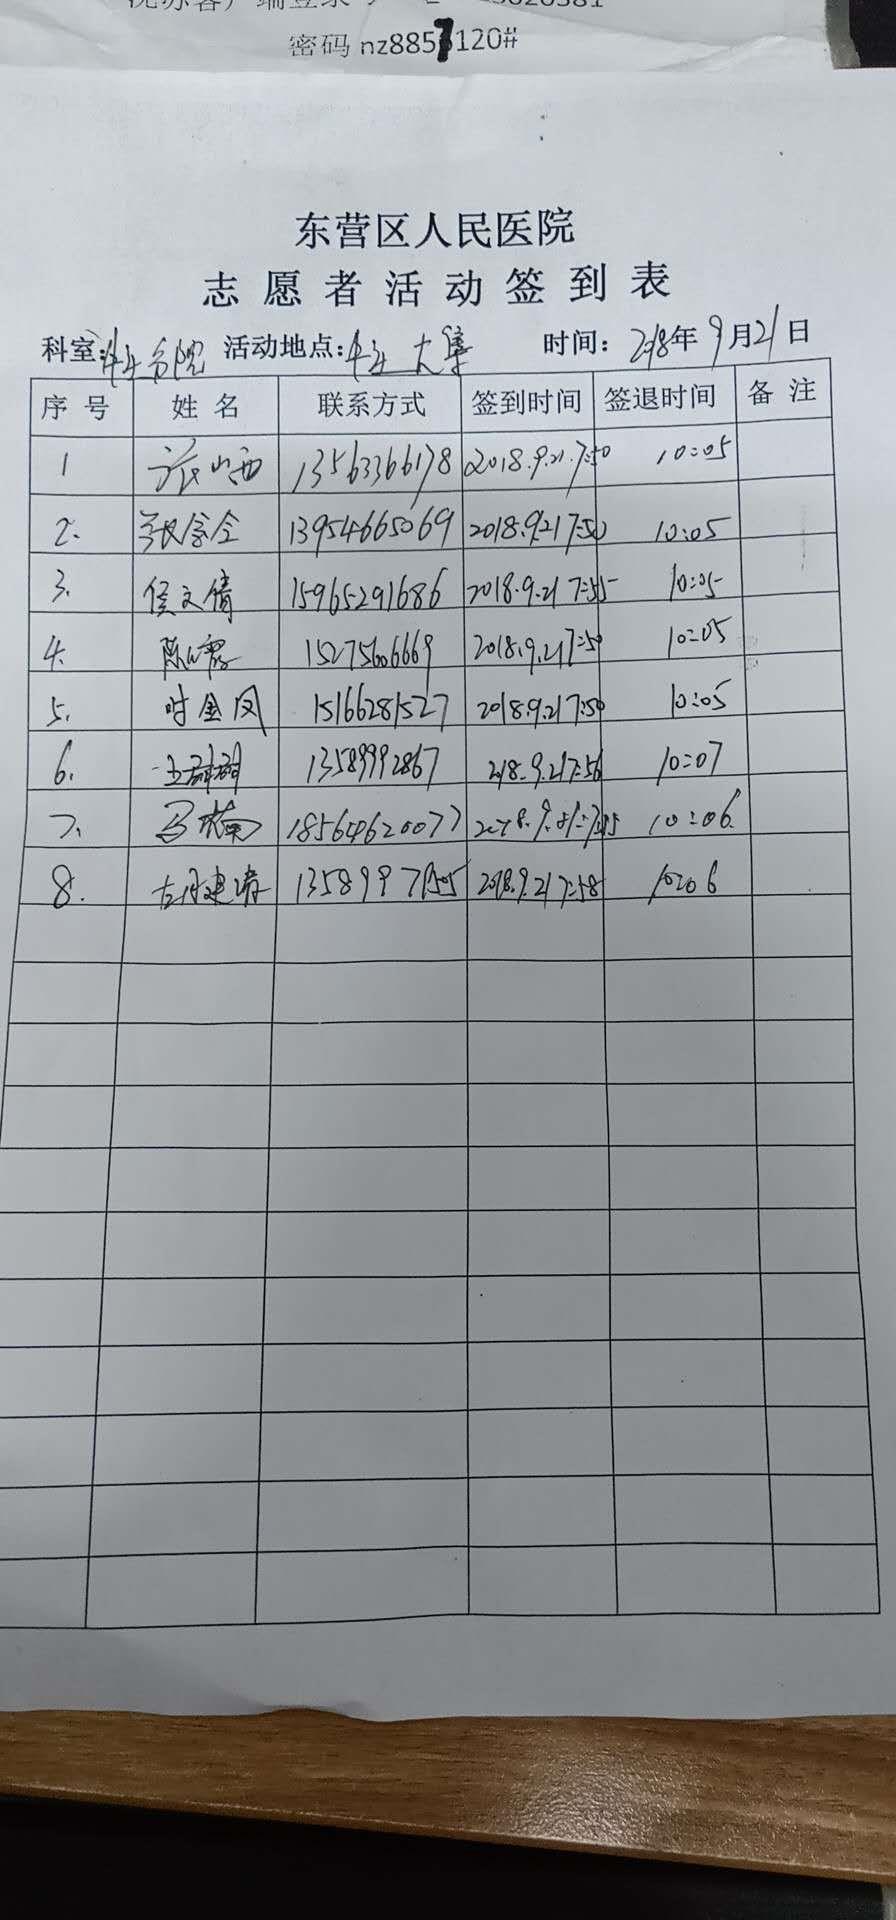 密码 nz8857120#
东营区人民医院
志愿者活动签到表
科室: 牛庄分院 活动地点: 牛庄大集 时间: 2018年9月21日
序号 姓名 联系方式 签到时间 签退时间 备注
1 13563366178 2018.9.21.7:50 10:05
2. 13954665069 2018.9.21 7:50 10:05
3. 侯文倩 15965291686 2018.9.21 7:55 10:05
4. 15275606669 2018.9.21 7:50 10:05
5. 时金凤 15166281527 2018.9.21 7:50 10:05
6. 13589992867 218.9.21 7:56 10:07
7. 马楠 18564620077 10:06.
8. 2018.9.21 7:58 10:06